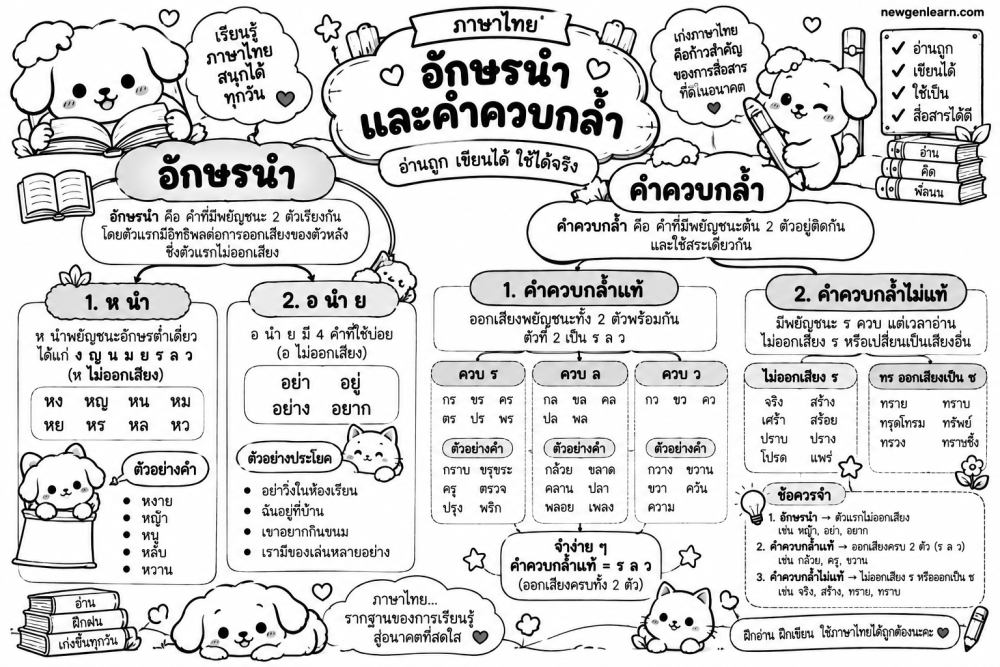 newgenlearn.com
เรียนรู้
ภาษาไทย
สนุกได้
ทุกวัน
ภาษาไทย
อักษรนำ
และคำควบกล้ำ
อ่านถูก เขียนได้ ใช้ได้จริง
เก่งภาษาไทย
คือก้าวสำคัญ
ของการสื่อสาร
ที่ดีในอนาคต
✓ อ่านถูก
✓ เขียนได้
✓ ใช้เป็น
✓ สื่อสารได้ดี
อ่าน
คิด
อักษรนำ
อักษรนำ คือ คำที่มีพยัญชนะ 2 ตัวเรียงกัน
โดยตัวแรกมีอิทธิพลต่อการออกเสียงของตัวหลัง
ซึ่งตัวแรกไม่ออกเสียง
1. ห นำ
ห นำพยัญชนะอักษรต่ำเดี่ยว
ได้แก่ ง ญ น ม ย ร ล ว
(ห ไม่ออกเสียง)
หง หญ หน หม
หย หร หล หว
ตัวอย่างคำ
• หงาย
• หญ้า
• หนู
• หลับ
• หวาน
2. อ นำ ย
อ นำ ย มี 4 คำที่ใช้บ่อย
(อ ไม่ออกเสียง)
อย่า อยู่
อย่าง อยาก
ตัวอย่างประโยค
• อย่าวิ่งในห้องเรียน
• ฉันอยู่ที่บ้าน
• เขาอยากกินขนม
• เรามีของเล่นหลายอย่าง
คำควบกล้ำ
คำควบกล้ำ คือ คำที่มีพยัญชนะต้น 2 ตัวอยู่ติดกัน
และใช้สระเดียวกัน
1. คำควบกล้ำแท้
ออกเสียงพยัญชนะทั้ง 2 ตัวพร้อมกัน
ตัวที่ 2 เป็น ร ล ว
ควบ ร
กร ขร คร
ตร ปร พร
ตัวอย่างคำ
กราบ ขรุขระ
ครู ตรวจ
ปรุง พริก
ควบ ล
กล ขล คล
ปล พล
ตัวอย่างคำ
กล้วย ขลาด
คลาน ปลา
พลอย เพลง
ควบ ว
กว ขว คว
ตัวอย่างคำ
กวาง ขวาน
ขวา ควัน
ความ
จำง่าย ๆ
คำควบกล้ำแท้ = ร ล ว
(ออกเสียงครบทั้ง 2 ตัว)
2. คำควบกล้ำไม่แท้
มีพยัญชนะ ร ควบ แต่เวลาอ่าน
ไม่ออกเสียง ร หรือเปลี่ยนเป็นเสียงอื่น
ไม่ออกเสียง ร
จริง สร้าง
เศร้า สร้อย
ปราบ ปราง
โปรด แพร่
ทร ออกเสียงเป็น ซ
ทราย ทราบ
ทรุดโทรม ทรัพย์
ทรวง
ข้อควรจำ
1. อักษรนำ → ตัวแรกไม่ออกเสียง
เช่น หญ้า, อย่า, อยาก
2. คำควบกล้ำแท้ → ออกเสียงครบ 2 ตัว (ร ล ว)
เช่น กล้วย, ครู, ขวาน
3. คำควบกล้ำไม่แท้ → ไม่ออกเสียง ร หรือออกเป็น ซ
เช่น จริง, สร้าง, ทราย, ทราบ
อ่าน
ฝึกฝน
เก่งขึ้นทุกวัน
ภาษาไทย...
รากฐานของการเรียนรู้
สู่อนาคตที่สดใส
ฝึกอ่าน ฝึกเขียน ใช้ภาษาไทยได้ถูกต้องนะคะ